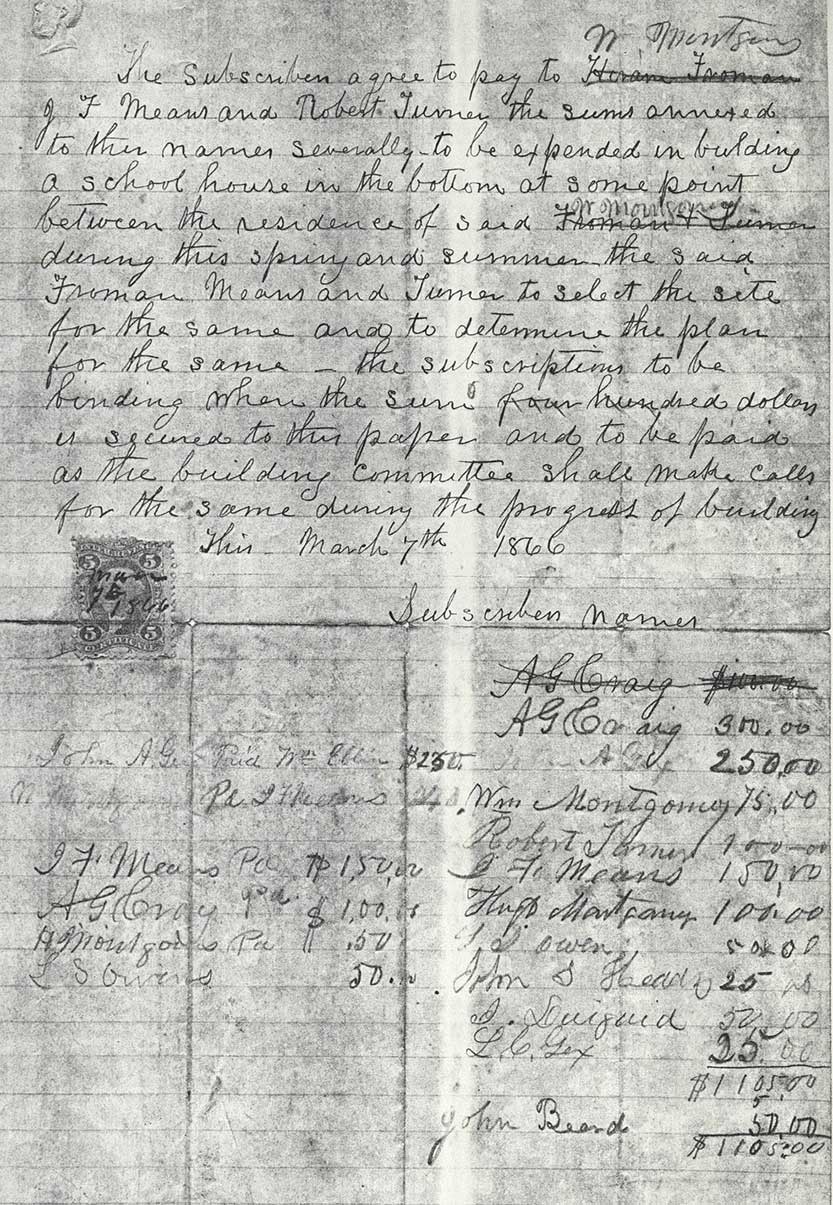 W. Montgomery
The Subscribers agree to pay to Hiram Froman
J F Means and Robert Turner the sums annexed
to their names severally to be expended in building
a school house in the bottom at some point
W Montgomery
between the residence of said Froman & Turner
during this spring and summer the said
Froman Means and Turner to select the site
for the same and to determine the plan
for the same — the subscriptions to be
binding when the sum of four hundred dollars
is secured to this paper and to be paid
as the building committee shall make calls
for the same during the progress of building
This March 7th 1866
5 5
March
7th
1866
5 5
Subscribers names
A G Craig $100.00
A G Craig 300.00
John A Gex Paid $250. John A Gex 250.00
Pd J F Means Wm Montgomery 75.00
Robert Turner 100.00
J F Means Pd $1,50.00 J F Means 150.00
A G Craig Pd $1,00.00 Hugh Montgomery 100.00
H Montgomery Pd 50 L S Owen 50.00
L S Owens 50.00 John S Heady 25
J. Duiguid 50.00
L. C. Gex 25.00
$1105.00
John Beard 50.00
$1105.00